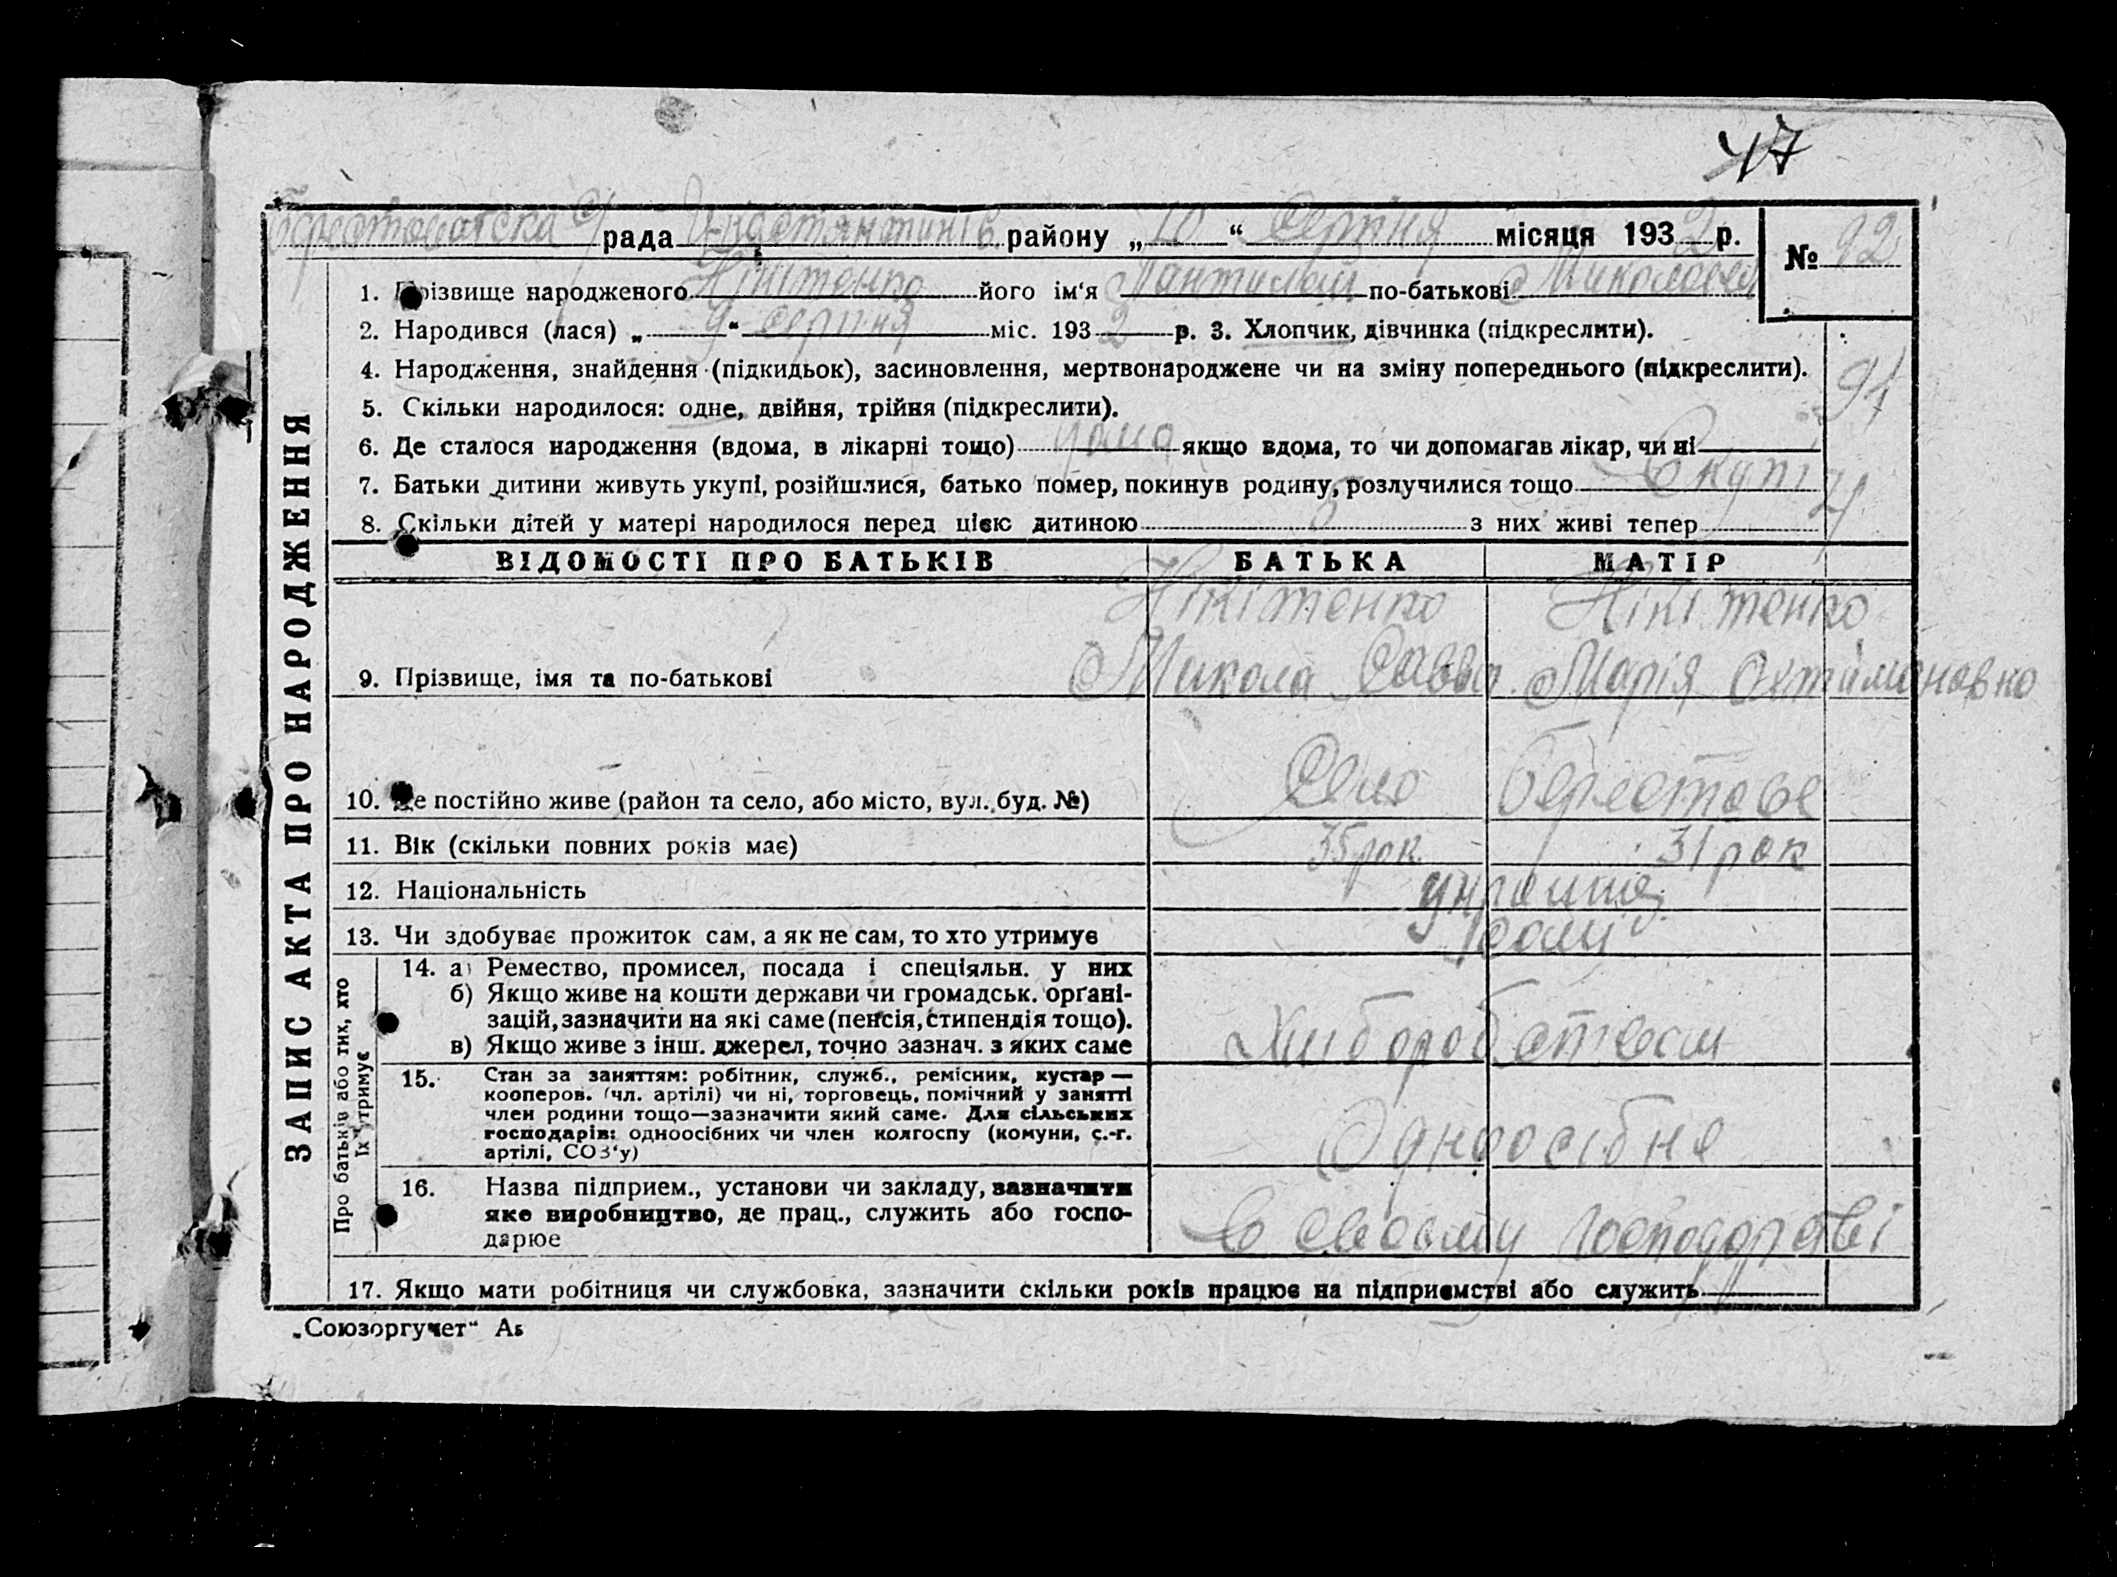 47
Берестоватска с/рада Костянтинів району „10“ Серпня місяця 1932 р. № 92
1. Прізвище народженого Нікітенко його ім'я Пантилей по-батькові Миколаєв
2. Народився (лася) „9“ Серпня міс. 1932 р. 3. Хлопчик, дівчинка (підкреслити).
4. Народження, знайдення (підкидьок), засиновлення, мертвонароджене чи на зміну попереднього (підкреслити).
91
5. Скільки народилося: одне, двійня, трійня (підкреслити).
6. Де сталося народження (вдома, в лікарні тощо) дома якщо вдома, то чи допомагав лікар, чи ні
7. Батьки дитини живуть укупі, розійшлися, батько помер, покинув родину, розлучилися тощо Вкупі
8. Скільки дітей у матері народилося перед цією дитиною 5 з них живі тепер 4
ВІДОМОСТІ ПРО БАТЬКІВ БАТЬКА МАТІР
Нікітенко Нікітенко
9. Прізвище, імя та по-батькові Микола Савов. Марія
10. Де постійно живе (район та село, або місто, вул., буд. №) Село Берестове
11. Вік (скільки повних років має) 35 рок. 31 рок
12. Національність українц.
13. Чи здобуває прожиток сам, а як не сам, то хто утримує сами
14. а) Ремество, промисел, посада і спеціяльн. у них
б) Якщо живе на кошти держави чи громадськ. орґані-
зацій, зазначити на які саме (пенсія, стипендія тощо).
в) Якщо живе з інш. джерел, точно зазнач. з яких саме
Хліборобством
15. Стан за заняттям: робітник, служб., ремісник, кустар —
кооперов. (чл. артілі) чи ні, торговець, помічний у занятті
член родини тощо—зазначити який саме. Для сільських
господарів: одноосібних чи член колгоспу (комуни, с.-г.
артілі, СОЗ'у)
Одноосібне
16. Назва підприєм., установи чи закладу, зазначити
яке виробництво, де прац., служить або госпо-
дарює
В своєму господарстві
17. Якщо мати робітниця чи службовка, зазначити скільки років працює на підприємстві або служить
ЗАПИС АКТА ПРО НАРОДЖЕННЯ
Про батьків або тих, хто
їх утримує
„Союзоргучет“